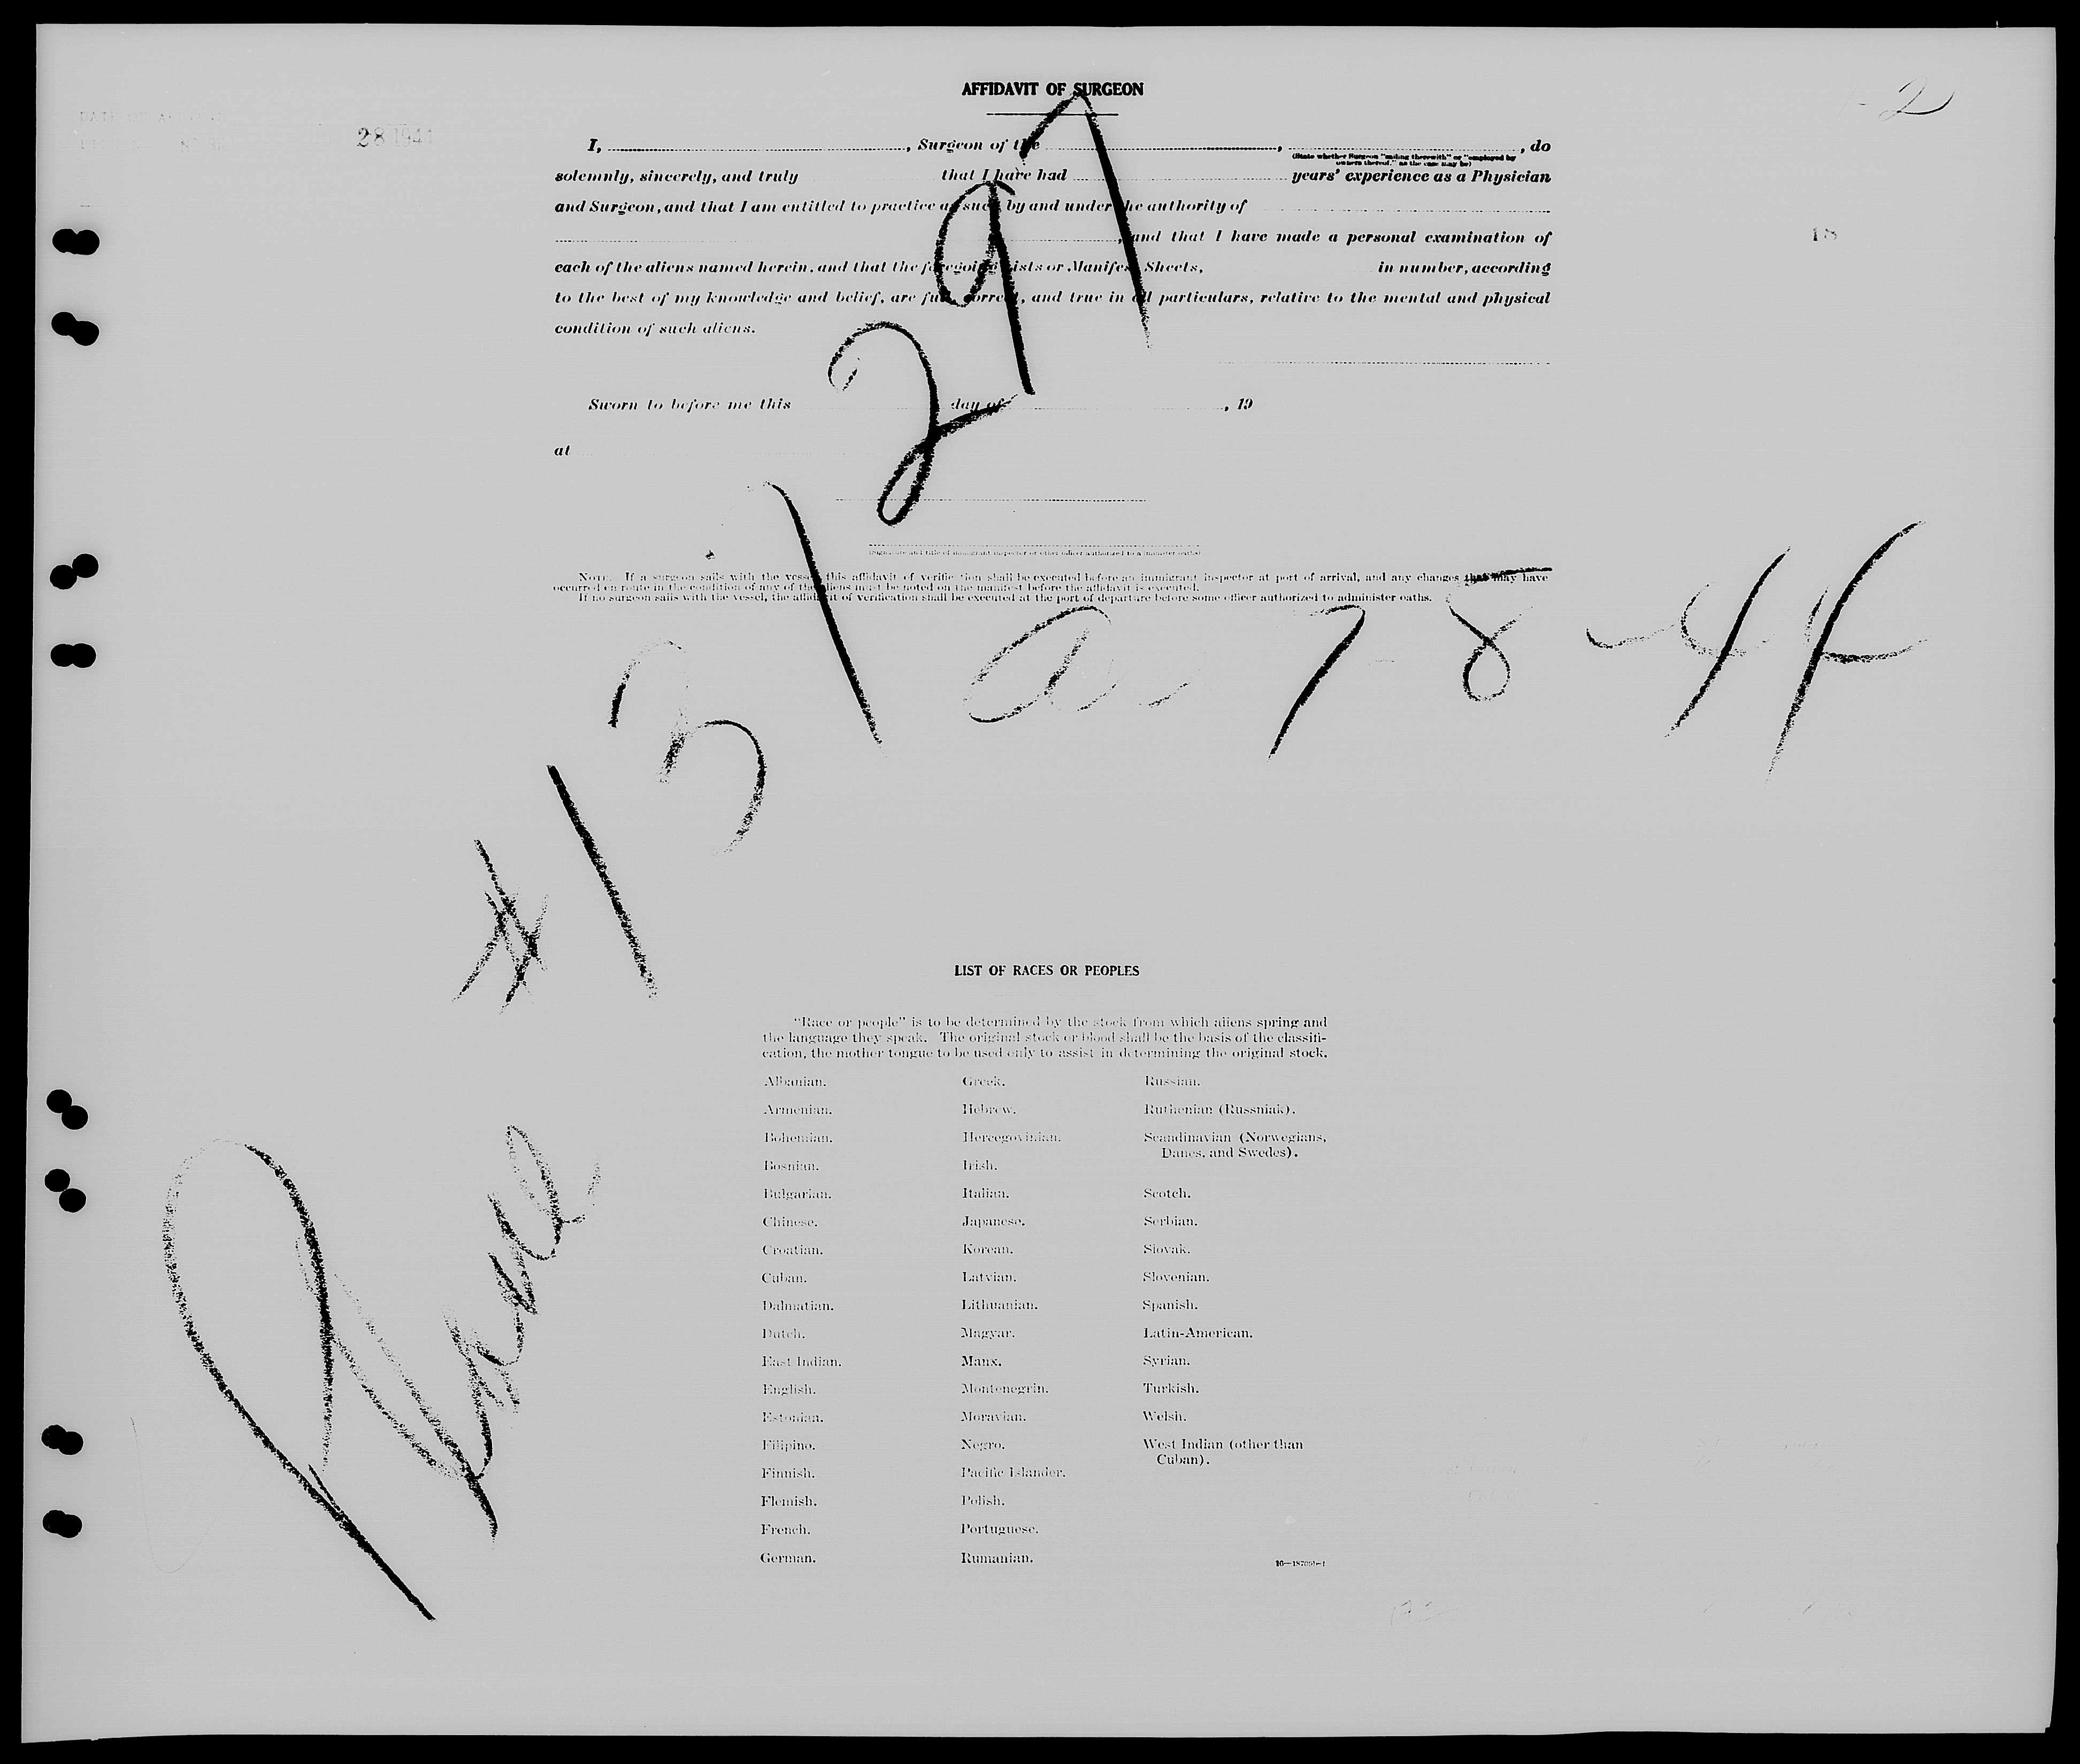 AFFIDAVIT OF SURGEON
2
28 1941
I, , Surgeon of the , , do
(State whether Surgeon "sailing therewith" or "employed by owners thereof," as the case may be)
solemnly, sincerely, and truly that I have had years' experience as a Physician
and Surgeon, and that I am entitled to practice as such by and under the authority of
, and that I have made a personal examination of
18
each of the aliens named herein, and that the foregoing Lists or Manifest Sheets, in number, according
to the best of my knowledge and belief, are full, correct, and true in all particulars, relative to the mental and physical
condition of such aliens.
Sworn to before me this day of , 19
at
(Signature and title of immigrant inspector or other officer authorized to administer oaths)
NOTE. If a surgeon sails with the vessel, this affidavit of verification shall be executed before an immigrant inspector at port of arrival, and any changes that may have
occurred en route in the condition of any of the aliens must be noted on the manifest before the affidavit is executed.
If no surgeon sails with the vessel, the affidavit of verification shall be executed at the port of departure before some officer authorized to administer oaths.
# 131297
7-8-44
LIST OF RACES OR PEOPLES
"Race or people" is to be determined by the stock from which aliens spring and
the language they speak. The original stock or blood shall be the basis of the classifi-
cation, the mother tongue to be used only to assist in determining the original stock.
Albanian. Greek. Russian.
Armenian. Hebrew. Ruthenian (Russniak).
Bohemian. Hercegovinian. Scandinavian (Norwegians,
Danes, and Swedes).
Bosnian. Irish.
Bulgarian. Italian. Scotch.
Chinese. Japanese. Serbian.
Croatian. Korean. Slovak.
Cuban. Latvian. Slovenian.
Dalmatian. Lithuanian. Spanish.
Dutch. Magyar. Latin-American.
East Indian. Manx. Syrian.
English. Montenegrin. Turkish.
Estonian. Moravian. Welsh.
Filipino. Negro. West Indian (other than
Cuban).
Finnish. Pacific Islander.
Flemish. Polish.
French. Portuguese.
German. Rumanian.